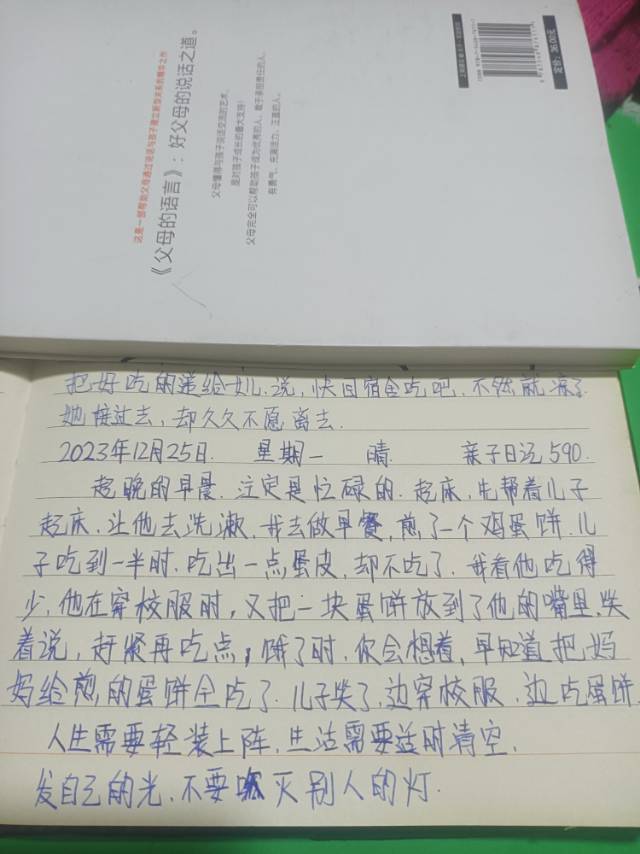 这是一部帮助父母通过说话与孩子建立新型关系的精华之作
《父母的语言》：好父母的说话之道。
父母懂得与孩子说话交流的艺术，
是对孩子成长的最大支持！
父母完全可以帮助孩子成为优秀的人、敢于承担责任的人、
有勇气、充满活力、正直的人。
定价：36.00元
把好吃的递给女儿.说，快回宿舍吃吧，不然就凉了
她接过去，却久久不愿离去.
2023年12月25日. 星期一 晴. 亲子日记590.
起晚的早晨.注定是忙碌的.起床，先帮着儿子
起床，让他去洗漱，我去做早餐，煎了一个鸡蛋饼.儿
子吃到一半时.吃出一点蛋皮，却不吃了.我看他吃得
少，他在穿校服时，又把一块蛋饼放到了他的嘴里.笑
着说，赶紧再吃点，饿了时，你会想着，早知道把妈
妈给煎的蛋饼全吃了.儿子笑了，边穿校服，边吃蛋饼.
人生需要轻装上阵，生活需要及时清空.
发自己的光，不要吹灭别人的灯.